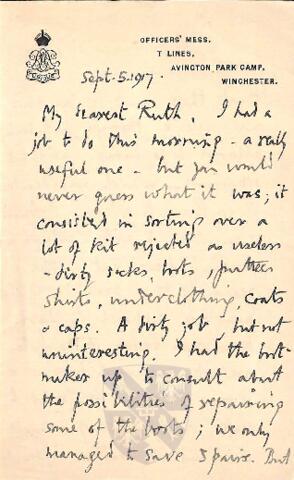 OFFICERS' MESS.
T LINES,
AVINGTON PARK CAMP,
WINCHESTER.
Sept. 5. 1917.
My dearest Ruth, I had a
job to do this morning - a really
useful one - but you would
never guess what it was; it
consisted in sorting over a
lot of kit rejected as useless
- dirty socks, boots, puttees
shirts, underclothing, coats
& caps. A dirty job, but not
uninteresting. I had the boot-
maker up to consult about
the possibilities of repairing
some of the boots; we only
managed to save 3 pairs. But